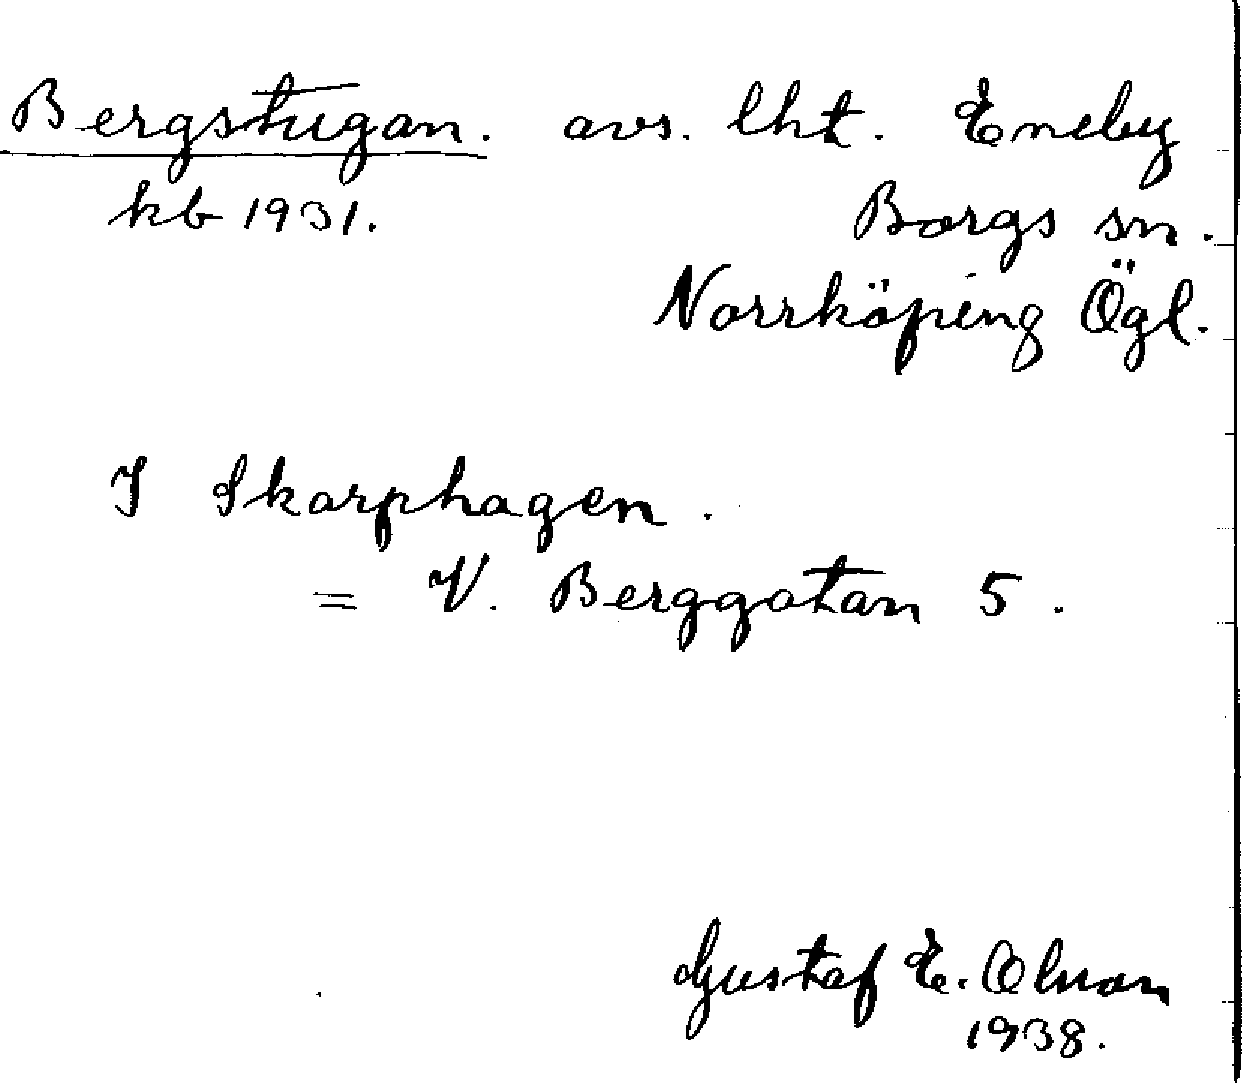 Bergstugan. avs. lht. Eneby
kb 1931. Borgs sn.
Norrköping Ögl.
I Skarphagen.
= V. Berggatan 5.
Gustaf E. Olsson
1938.